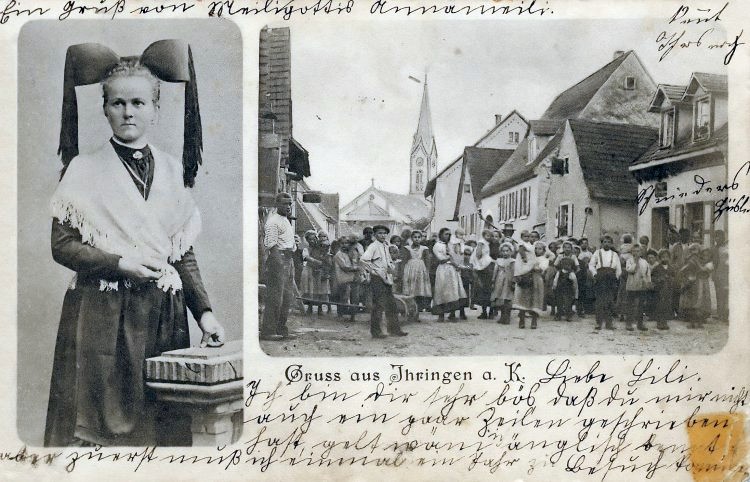 Ein Gruß von Meiligottis Annameili.
Gruss aus Ihringen a. K.
Liebe Lili.
Ich bin dir sehr bös daß du mir nicht
auch ein paar Zeilen geschrieben
hast, gelt wän änglisch
aber zuerst muß ich einmal ein Jahr zu Besuch